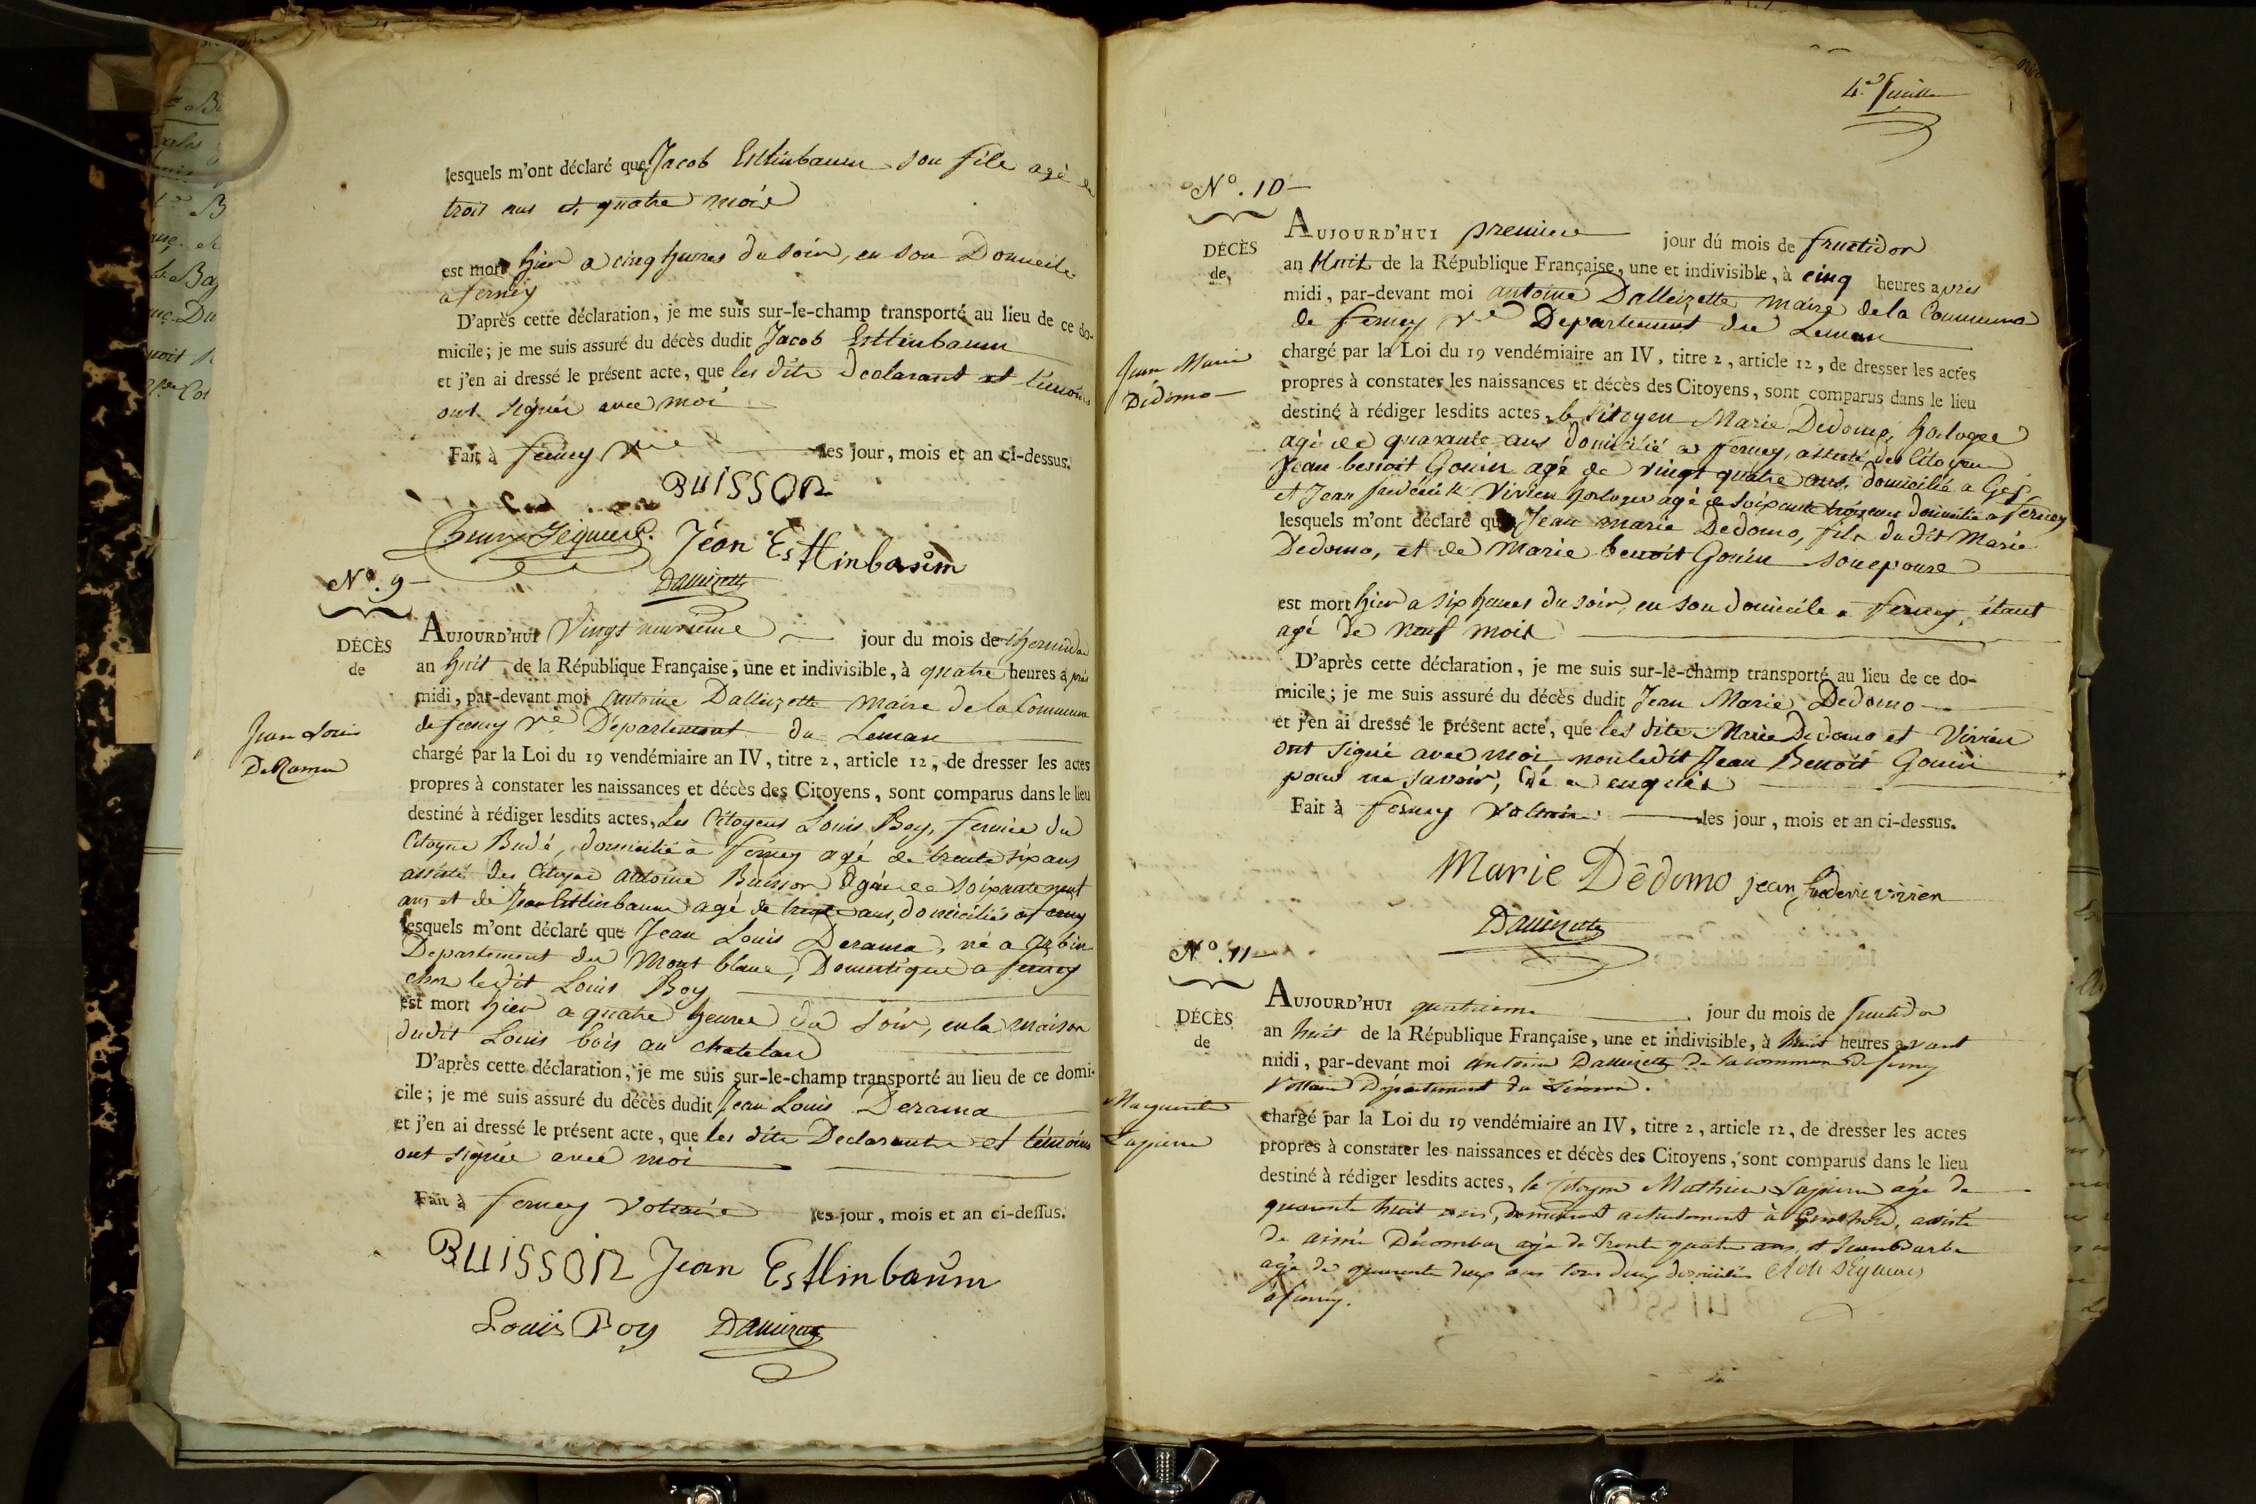 lesquels m'ont déclaré que Jacob Esttinbaum son fils agé de
trois ans et quatre mois
est mort hier a cinq heures du soir, en son Domicile
a ferney
D'après cette déclaration, je me suis sur-le-champ transporté au lieu de ce do-
micile; je me suis assuré du décès dudit Jacob Esttinbaum
et j'en ai dressé le présent acte, que les dits Declarant et témoins
ont signés avec moi
Fait à ferney Vre les jour, mois et an ci-dessus.
BUISSON
Jéan Esttinbaum
Dallizette
N.º 9
DÉCÈS
de
Jean Louis
DeRama
AUJOURD'HUI Vingt neuvieme jour du mois de thermidor
an huit de la République Française, une et indivisible, à quatre heures après
midi, par-devant moi Antoine Dalleizette maire de la Commune
de ferney Vre Département du Leman
chargé par la Loi du 19 vendémiaire an IV, titre 2, article 12, de dresser les actes
propres à constater les naissances et décès des Citoyens, sont comparus dans le lieu
destiné à rédiger lesdits actes, Les Citoyens Louis Boy, fermier du
Citoyen Budé, domicilié à ferney agé de trente six ans
assisté des Citoyens antoine Buisson agé de soixante neuf
ans et de Jean Esttinbaum agé de trente ans, domiciliés a ferney
lesquels m'ont déclaré que Jean Louis Derama, né a Arbin
Departement du Mont blanc, Domestique a ferney
chez ledit Louis Boy
est mort hier a quatre heures du soir, en la maison
dudit Louis bois au chatelard
D'après cette déclaration, je me suis sur-le-champ transporté au lieu de ce domi-
cile; je me suis assuré du décès dudit Jean Louis Derama
et j'en ai dressé le présent acte, que les dits Declarants et témoins
ont signés avec moi
Fait à ferney Voltaire les jour, mois et an ci-dessus.
BUISSON Jean Esttinbaum
Louis Boy Dallizette
4e feuille
N.º 10
DÉCÈS
de
Jean Marie
Dédomo
AUJOURD'HUI premiere jour du mois de fructidor
an Huit de la République Française, une et indivisible, à cinq heures apres
midi, par-devant moi antoine Dalleizette maire de la Commune
de ferney Vre Departement du Leman
chargé par la Loi du 19 vendémiaire an IV, titre 2, article 12, de dresser les actes
propres à constater les naissances et décès des Citoyens, sont comparus dans le lieu
destiné à rédiger lesdits actes, le Citoyen Marie Dedomo, horloger
agé de quarante ans domicilié a ferney, assisté des Citoyens
Jean benoit Gouin agé de vingt quatre ans, domicilié a Gex
et Jean frédérik Vivien horloger agé de soixante trois ans domicilié a ferney
lesquels m'ont déclaré que Jean marie Dedomo, fils dudit Marie
Dedomo, et de Marie benoit Gouin son epouse
est mort hier a six heures du soir, en son domicile a ferney, étant
agé de neuf mois
D'après cette déclaration, je me suis sur-le-champ transporté au lieu de ce do-
micile; je me suis assuré du décès dudit Jean Marie Dedomo
et j'en ai dressé le présent acte, que les dits Marie Dedomo et Vivien
ont signé avec moi, non ledit Jean Benoit Gouin
pour ne savoir, de ce enquis
Fait à ferney Voltaire les jour, mois et an ci-dessus.
Marie Dêdomo jean frederic vivien
Dallizette
N.º 11
DÉCÈS
de
Marguerite
Lapierre
AUJOURD'HUI quatrieme jour du mois de fructidor
an huit de la République Française, une et indivisible, à huit heures avant
midi, par-devant moi antoine Dalleizette de la commune de ferney
Voltaire Département du Léman.
chargé par la Loi du 19 vendémiaire an IV, titre 2, article 12, de dresser les actes
propres à constater les naissances et décès des Citoyens, sont comparus dans le lieu
destiné à rédiger lesdits actes, le Citoyen Mathieu Lapierre agé de
quarante huit ans, demeurant actuelement à Genthod, assisté
de aimé Décombaz agé de trente quatre ans, et Jean Barbe
agé de quarante deux ans tous deux domiciliés
à ferney.